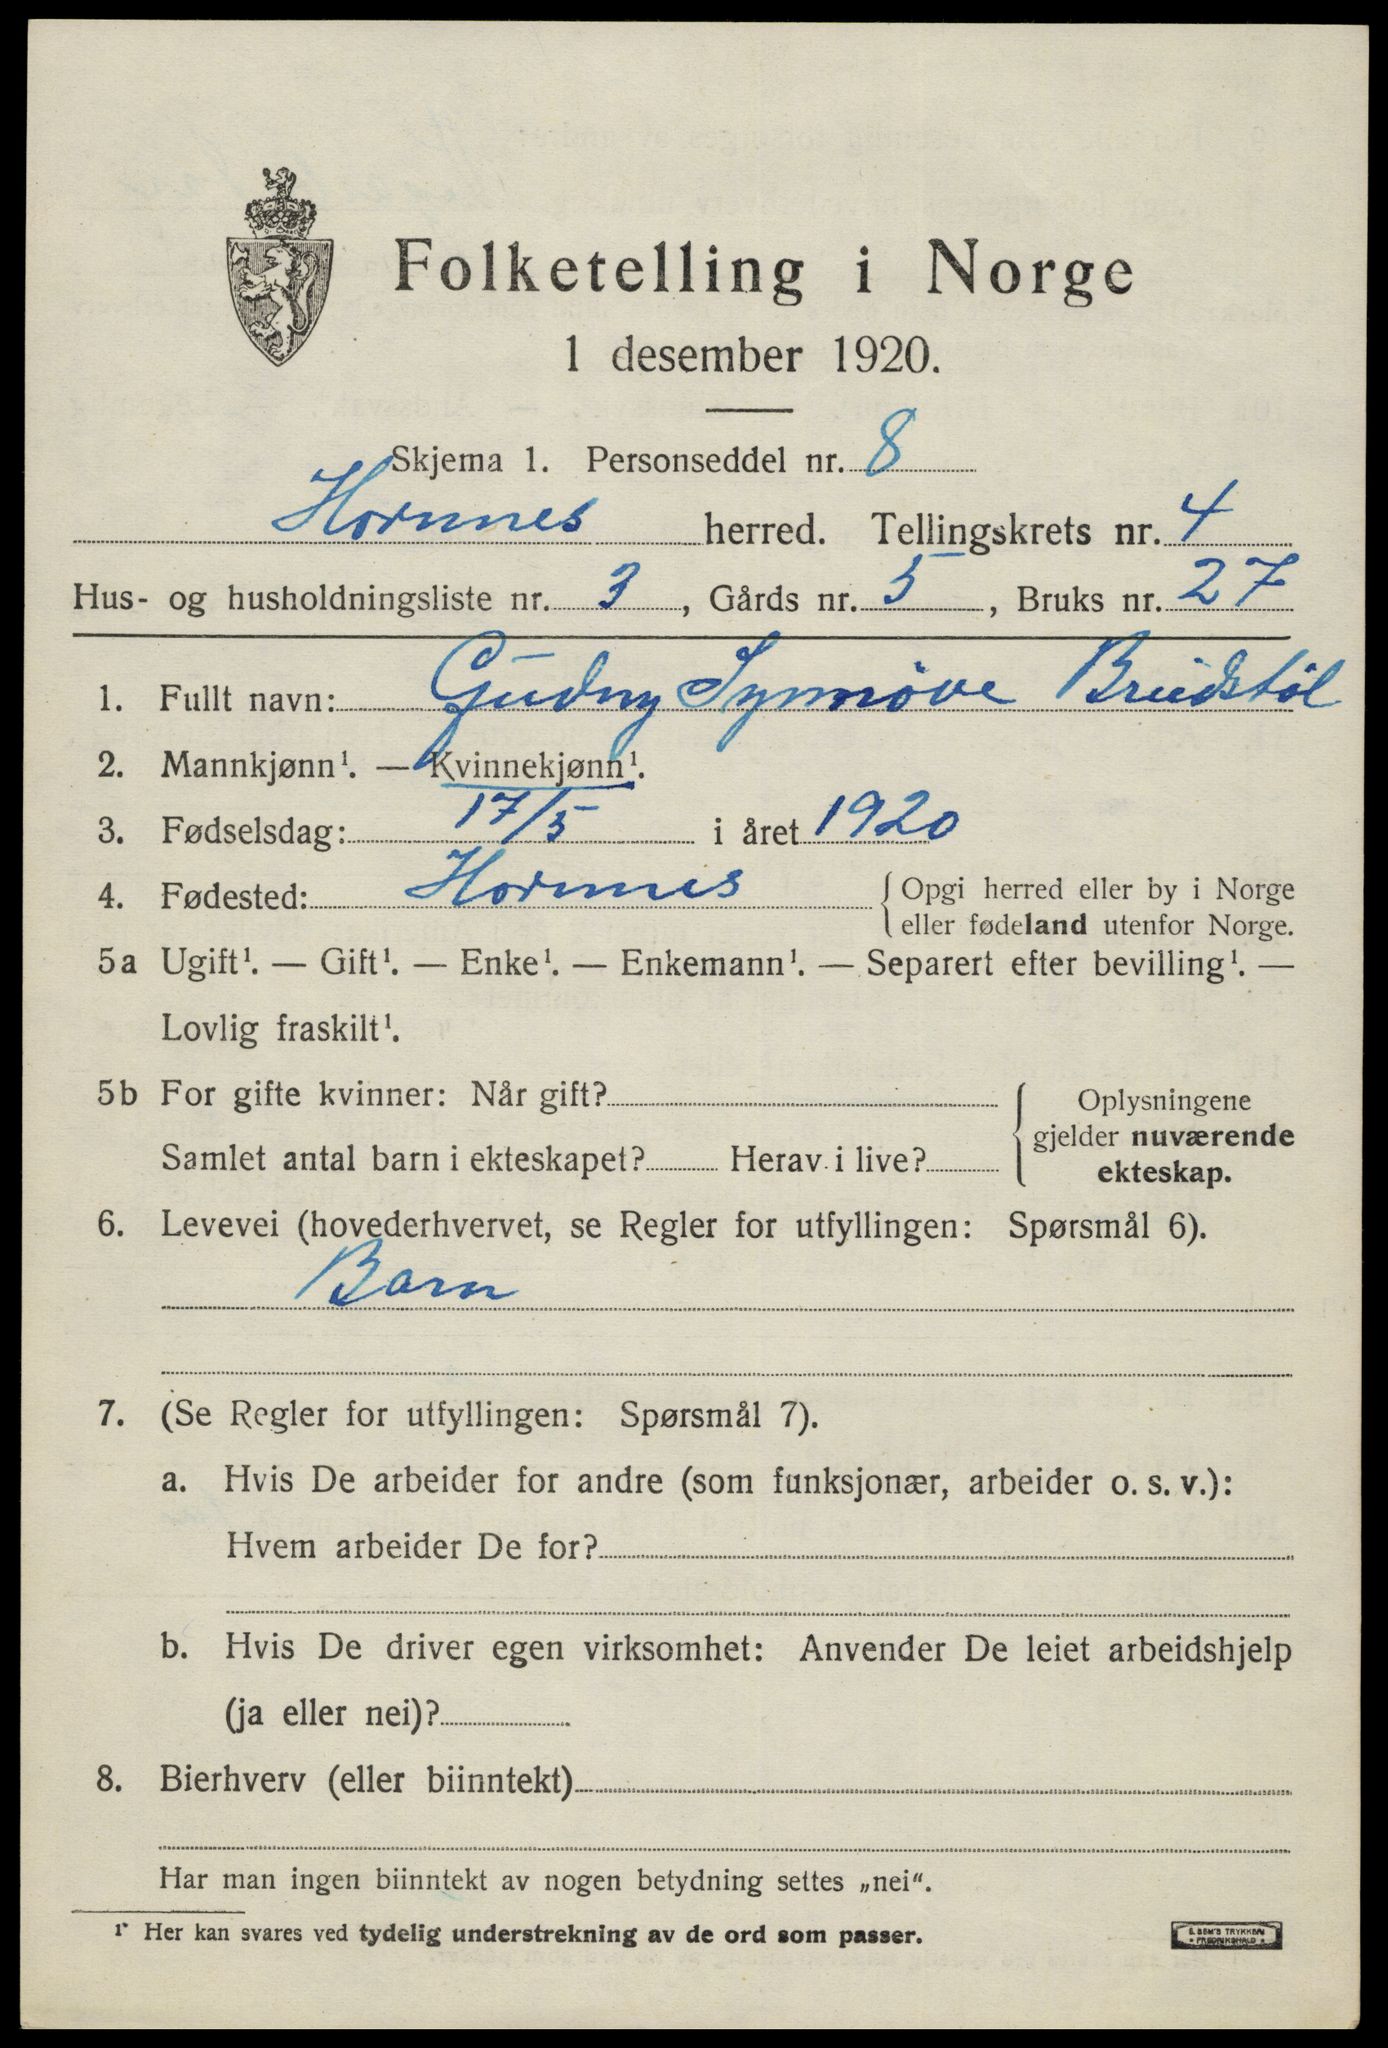 Folketelling i Norge
1 desember 1920.
Skjema 1. Personseddel nr. 8
Hornnes herred. Tellingskrets nr. 4
Hus- og husholdningsliste nr. 3, Gårds nr. 5, Bruks nr. 27
1. Fullt navn: Gudny Synnøve Breidstøl
2. Mannkjønn¹. — Kvinnekjønn¹.
3. Fødselsdag: 17/5 i året 1920
4. Fødested: Hornnes { Opgi herred eller by i Norge
eller fødeland utenfor Norge.
5a Ugift¹. — Gift¹. — Enke¹. — Enkemann¹. — Separert efter bevilling¹. —
Lovlig fraskilt¹.
5b For gifte kvinner: Når gift? { Oplysningene
gjelder nuværende
Samlet antal barn i ekteskapet? Herav i live? ekteskap.
6. Levevei (hovederhvervet, se Regler for utfyllingen: Spørsmål 6).
Barn
7. (Se Regler for utfyllingen: Spørsmål 7).
a. Hvis De arbeider for andre (som funksjonær, arbeider o. s. v.):
Hvem arbeider De for?
b. Hvis De driver egen virksomhet: Anvender De leiet arbeidshjelp
(ja eller nei)?
8. Bierhverv (eller biinntekt)
Har man ingen biinntekt av nogen betydning settes „nei“.
¹* Her kan svares ved tydelig understrekning av de ord som passer.
E. SEM'S TRYKKERI
* FREDRIKSHALD *